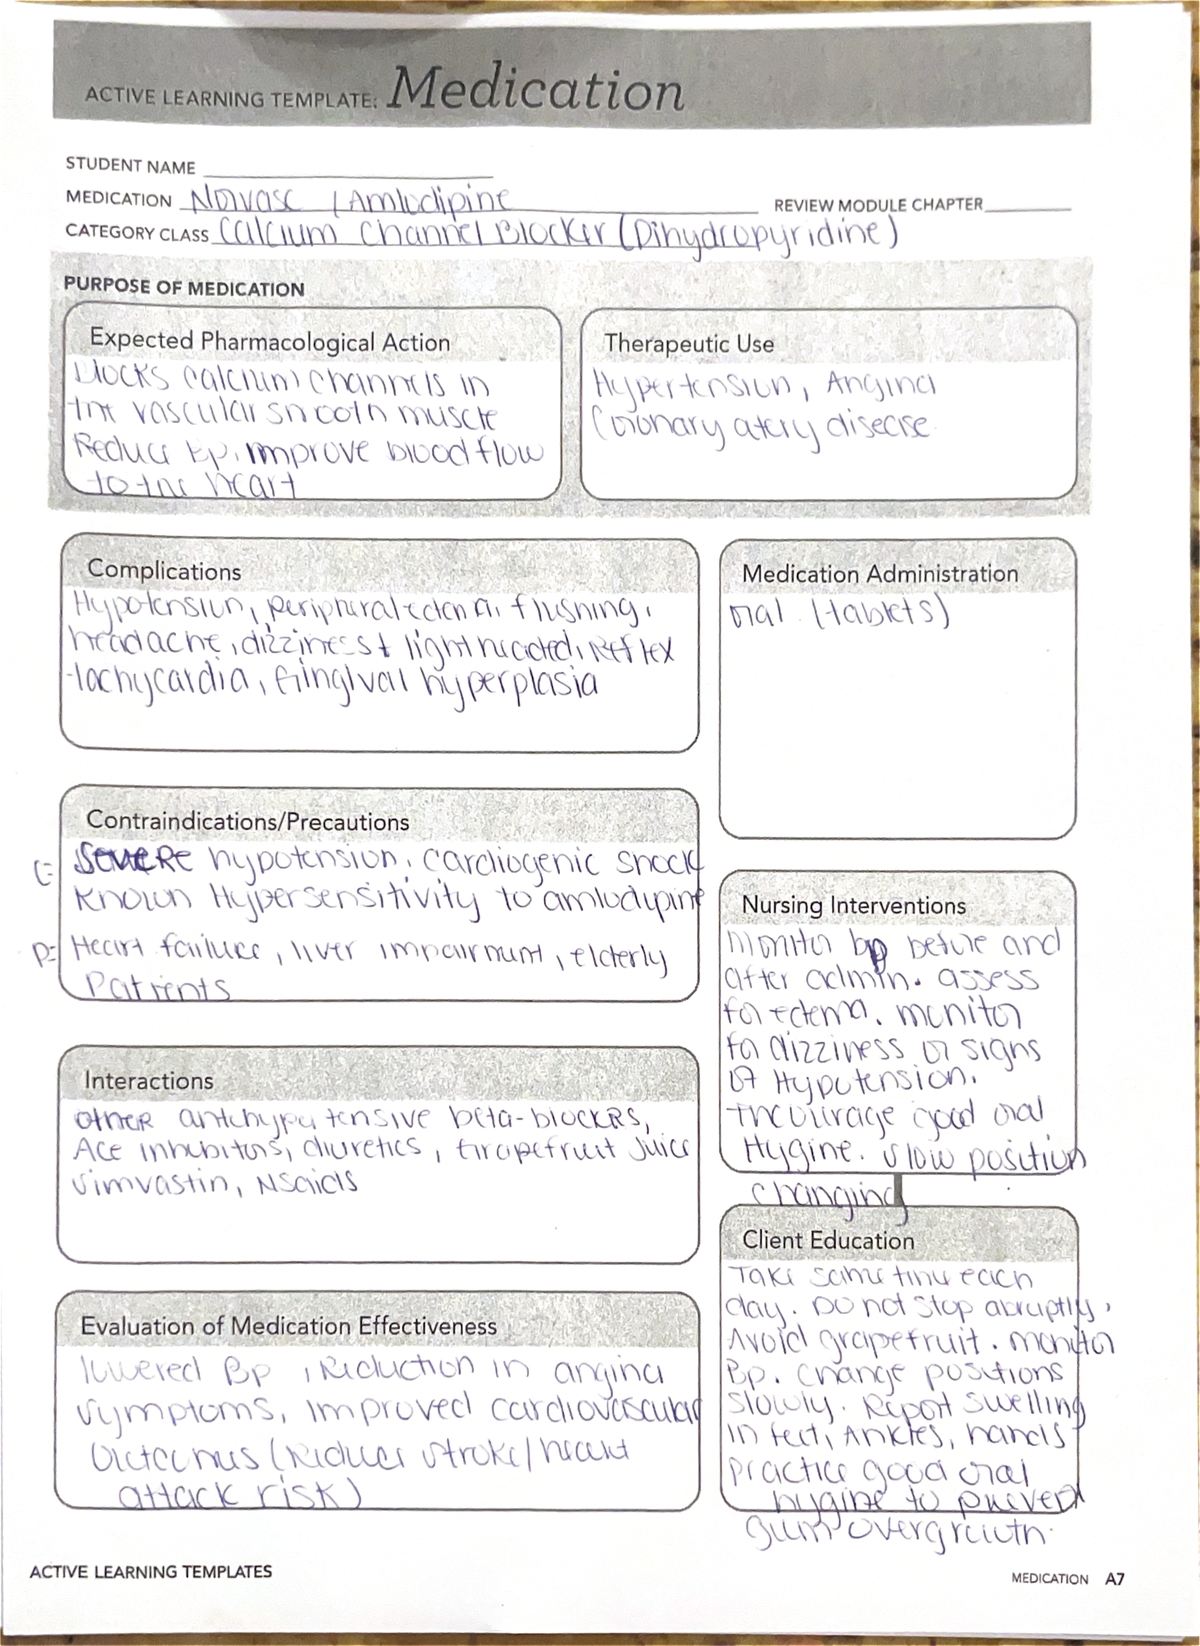 ACTIVE LEARNING TEMPLATE: Medication
STUDENT NAME
MEDICATION Norvasc / Amlodipine
REVIEW MODULE CHAPTER
CATEGORY CLASS Calcium Channel Blocker (Dihydropyridine)
PURPOSE OF MEDICATION
Expected Pharmacological Action
blocks calcium channels in
the vascular smooth muscle
Reduce Bp, improve blood flow
to the heart
Therapeutic Use
Hypertension, Angina
Coronary atery disease
Complications
Hypotension, peripheral edema, flushing,
headache, dizziness + lightheaded, Reflex
tachycardia, Gingival hyperplasia
Medication Administration
oral (tablets)
Contraindications/Precautions
C= SEVERE hypotension, cardiogenic shock
Known Hypersensitivity to amlodypine
P= Heart failure, liver impairment, elderly
Patients
Nursing Interventions
Monitor bp before and
after admin. assess
for edema. monitor
for dizziness or signs
of Hypotension.
Encourage good oral
Hygine. Slow position
changing
Interactions
other antihypatensive beta-blockers,
Ace inhibitors, diuretics, Grapefruit Juice
Simvastin, NSaids
Client Education
Take same time each
day. Do not stop abruptly,
Avoid grapefruit. monitor
Bp. Change positions
slowly. Report swelling
in feet, Ankles, hands
practice good oral
hygine to prevent
gum overgrowth.
Evaluation of Medication Effectiveness
lowered Bp, Reduction in angina
symptoms, improved cardiovascular
Outcomes (Reduces stroke/heart
attack risk)
ACTIVE LEARNING TEMPLATES
MEDICATION A7